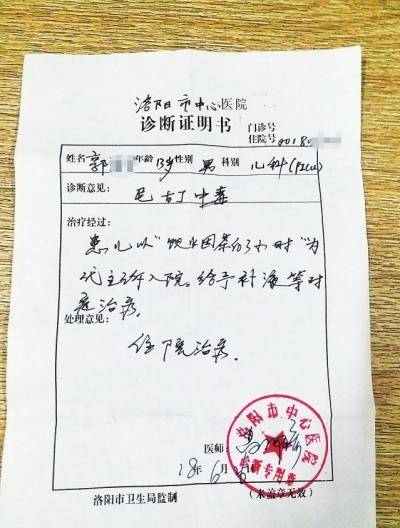 洛阳市中心医院
诊断证明书
门诊号
住院号 00180
姓名 郭 年龄 13岁 性别 男 科别 儿科(PICU)
诊断意见:
尼古丁中毒
治疗经过:
患儿以"饮 时"为
入院。给予补液等对
症治疗。
处理意见:
住院治疗。
医师:
18年6
洛阳市卫生局监制 (未盖章无效)
洛阳市中心医院